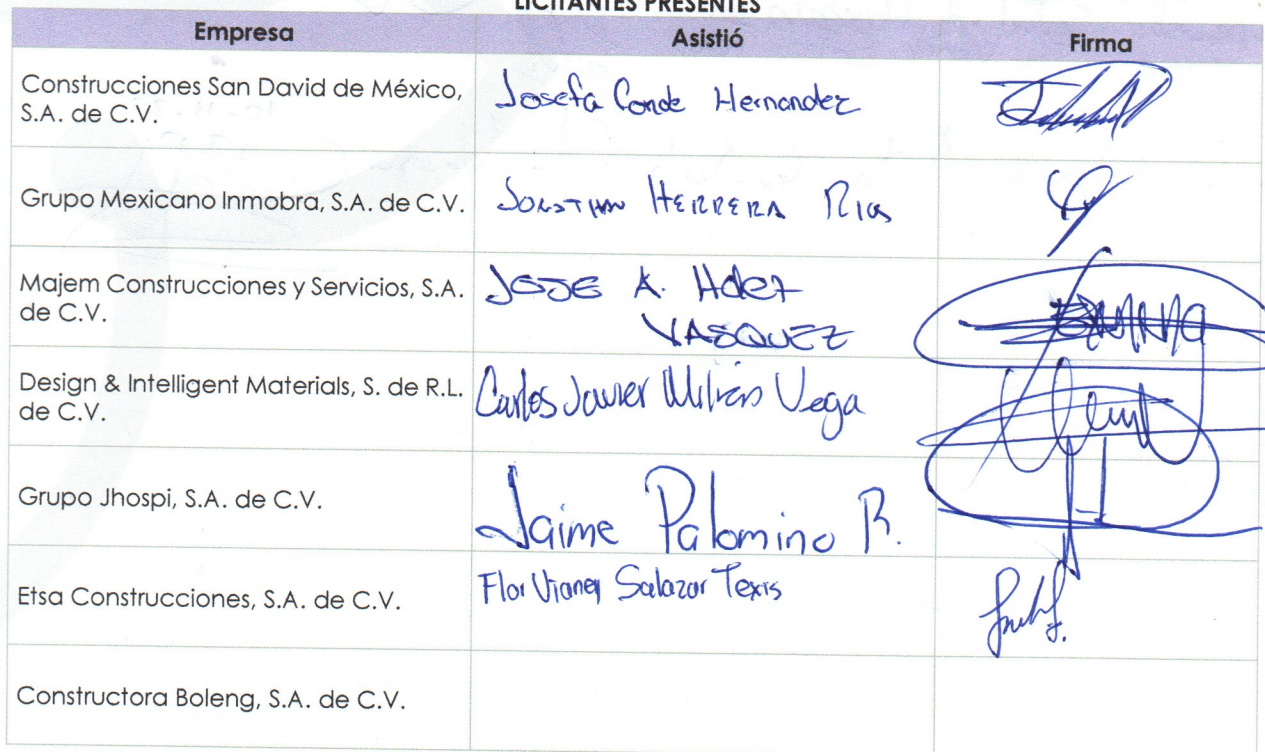 LICITANTES PRESENTES
Empresa Asistió Firma
Construcciones San David de México, Josefa Conde Hernandez
S.A. de C.V.
Grupo Mexicano Inmobra, S.A. de C.V. HERRERA Rios
Majem Construcciones y Servicios, S.A. JOSE A. Hdez
de C.V. VASQUEZ
Design & Intelligent Materials, S. de R.L. Carlos Javier Vega
de C.V.
Grupo Jhospi, S.A. de C.V. Jaime Palomino R.
Etsa Construcciones, S.A. de C.V. Flor Vianey Salazar Texis
Constructora Boleng, S.A. de C.V.